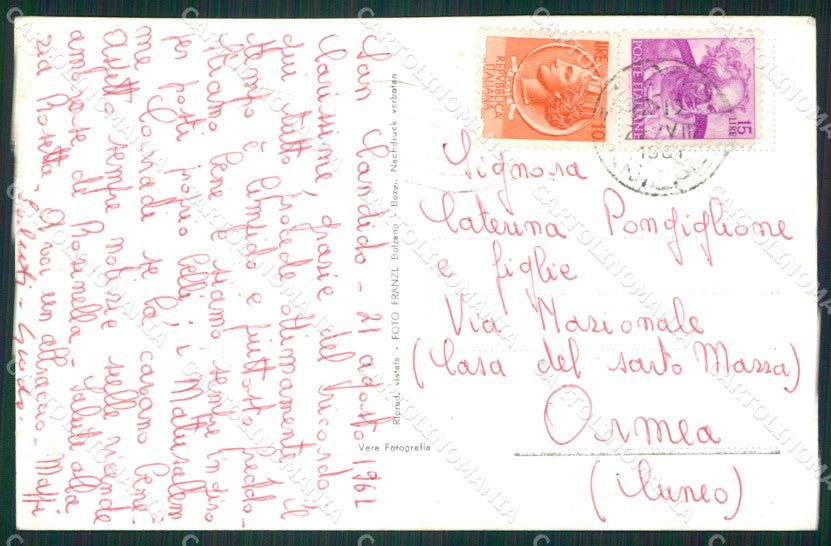 San Candido - 21 agosto 1961
Carissime, grazie del ricordo.
Qui tutto procede ottimamente, il
tempo è umido e piuttosto freddo.
Stiamo bene e siamo sempre in giro
per posti
me Corradi se la cavano bene.
Aspetto sempre notizie delle vicende
amorose di Rosinella - Salute alla
zia Rosetta - A voi un abbraccio - 
Saluti - Guido.
Vera Fotografia
Riprod. vietata - FOTO FRANZL Bolzano - Bozen Nachdruck verboten
REPVBBLICA
ITALIANA
LIRE 10
POSTE ITALIANE
15
LIRE
1961
Signora
Caterina Pongiglione
e figlie
Via Nazionale
(Casa del sarto Mazza)
Ormea
(Cuneo)
CARTOLINOMANIA